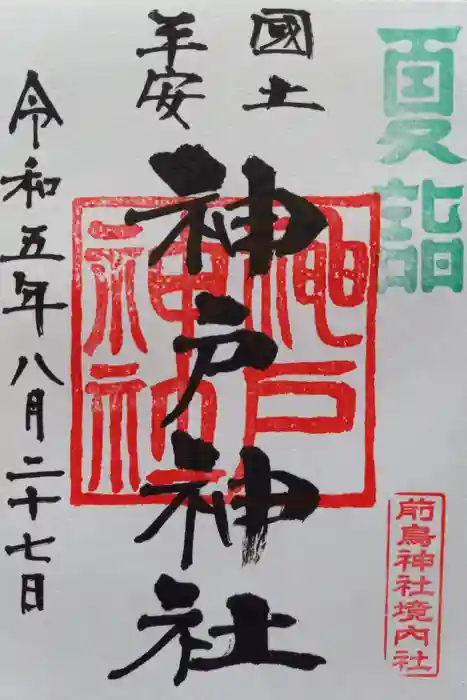 夏詣
前鳥神社境内社
國土
平安
神戸神社
神戸
神社
令和五年八月二十七日